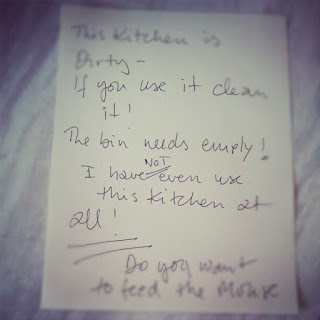 This Kitchen is
Dirty -
If you use it clean
it!
The bin needs empty!
NOT
I have even use
this Kitchen at
all!
Do you want
to feed the Mouse